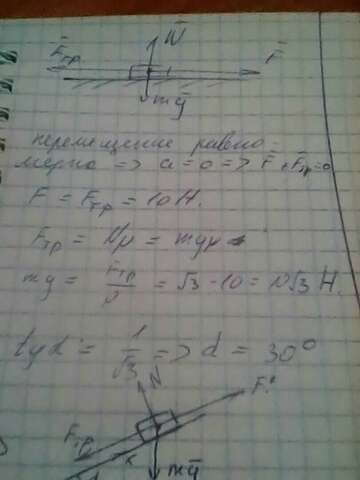 N̄
F̄тр
F̄
mḡ
перемещение равно-
мерно => a = 0 => F̄ + F̄тр = 0
F = Fтр = 10 Н.
Fтр = Nμ = mgμ
mg = Fтр/μ = √3 · 10 = 10√3 Н.
tgα = 1/√3 => α = 30°
N
F
Fтр
mḡ